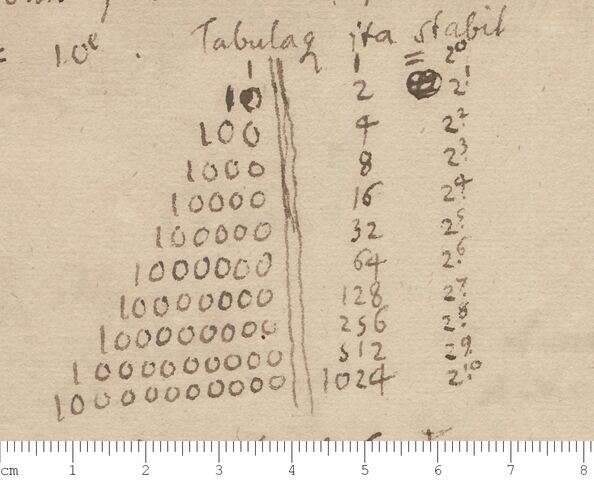 = 10^e. Tabulaq ita stabit
1 1 = 2^0
10 2 2^1
100 4 2^2
1000 8 2^3
10000 16 2^4
100000 32 2^5
1000000 64 2^6
10000000 128 2^7
100000000 256 2^8
1000000000 512 2^9
10000000000 1024 2^10
cm 1 2 3 4 5 6 7 8